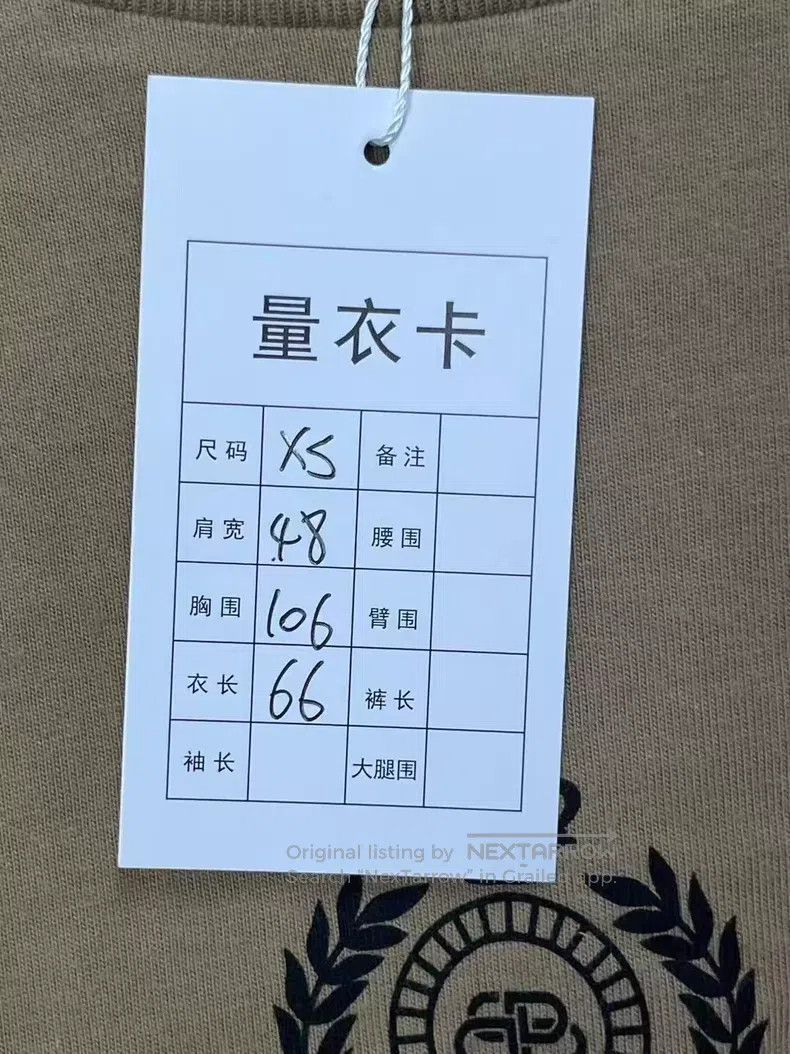 量衣卡
尺码 XS 备注
肩宽 48 腰围
胸围 106 臂围
衣长 66 裤长
袖长 大腿围
Original listing by NEXTARROW
Search "NexTarrow" in Grailed app.